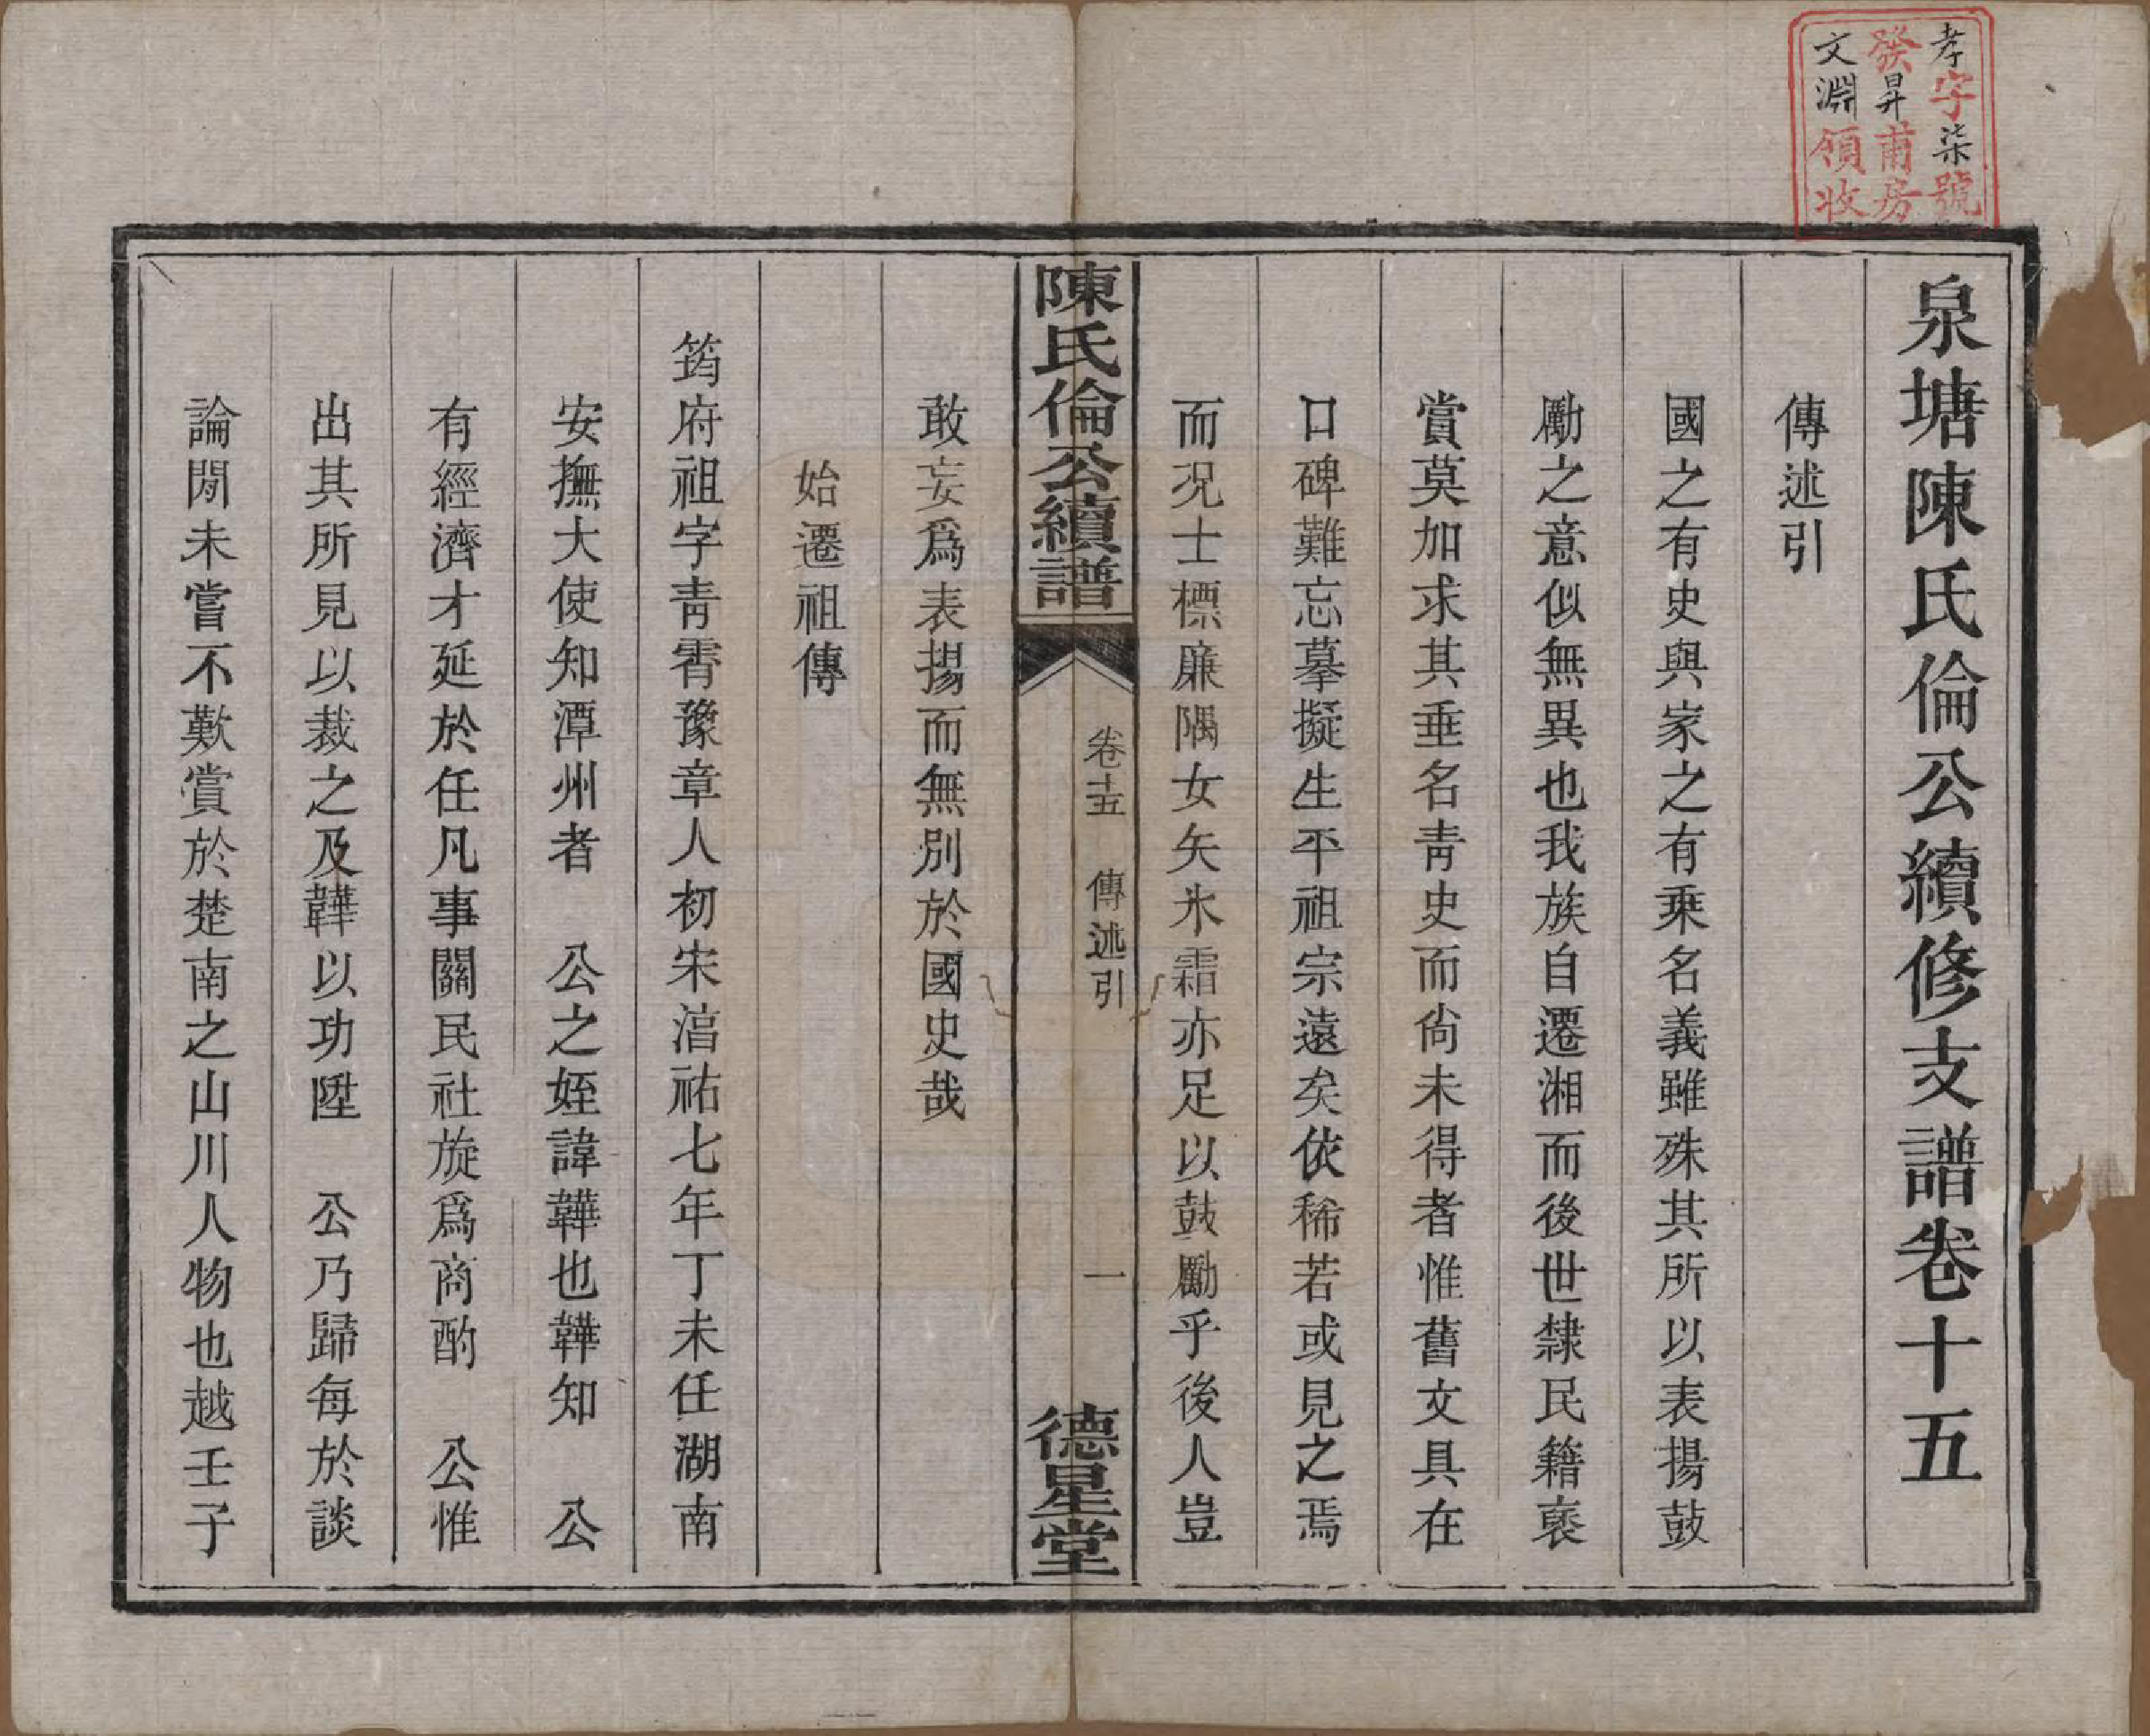 孝字柒號
發昇甫房
文淵領收
泉塘陳氏倫公續修支譜卷十五
傳述引
國之有史與家之有乘名義雖殊其所以表揚鼓
勵之意似無異也我族自遷湘而後世隸民籍褒
賞莫加求其垂名青史而尙未得者惟舊文具在
口碑難忘摹擬生平祖宗遠矣依稀若或見之焉
而況士標廉隅女矢氷霜亦足以鼓勵乎後人豈
陳氏倫公續譜
卷十五
傳述引
一
德星堂
敢妄爲表揚而無別於國史哉
始遷祖傳
筠府祖字青霄豫章人初宋湻祐七年丁未任湖南
安撫大使知潭州者 公之姪諱韡也韡知 公
有經濟才延於任凡事關民社旋爲商酌 公惟
出其所見以裁之及韡以功陞 公乃歸每於談
論閒未嘗不歎賞於楚南之山川人物也越壬子